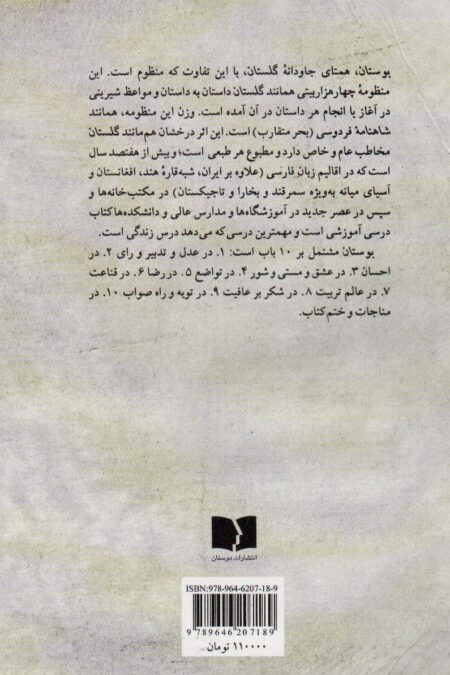 بوستان، همتای جاودانهٔ گلستان، با این تفاوت که منظوم است. این
منظومهٔ چهارهزاربیتی همانند گلستان داستان به داستان و مواعظ شیرینی
در آغاز یا انجام هر داستان در آن آمده است. وزن این منظومه، همانند
شاهنامهٔ فردوسی (بحر متقارب) است. این اثر درخشان هم‌مانند گلستان
مخاطب عام و خاص دارد و مطبوع هر طبعی است؛ و بیش از هفتصد سال
است که در اقالیم زبان فارسی (علاوه بر ایران، شبه‌قارهٔ هند، افغانستان و
آسیای میانه به‌ویژه سمرقند و بخارا و تاجیکستان) در مکتب‌خانه‌ها و
سپس در عصر جدید در آموزشگاه‌ها و مدارس عالی و دانشکده‌ها کتاب
درسی آموزشی است و مهمترین درسی که می‌دهد درس زندگی است.
بوستان مشتمل بر ۱۰ باب است: ۱. در عدل و تدبیر و رای ۲. در
احسان ۳. در عشق و مستی و شور ۴. در تواضع ۵. در رضا ۶. در قناعت
۷. در عالم تربیت ۸. در شکر بر عافیت ۹. در توبه و راه صواب ۱۰. در
مناجات و ختم کتاب.
انتشارات دوستان
ISBN:978-964-6207-18-9
9 789646 207189
۱۱۰۰۰۰ تومان